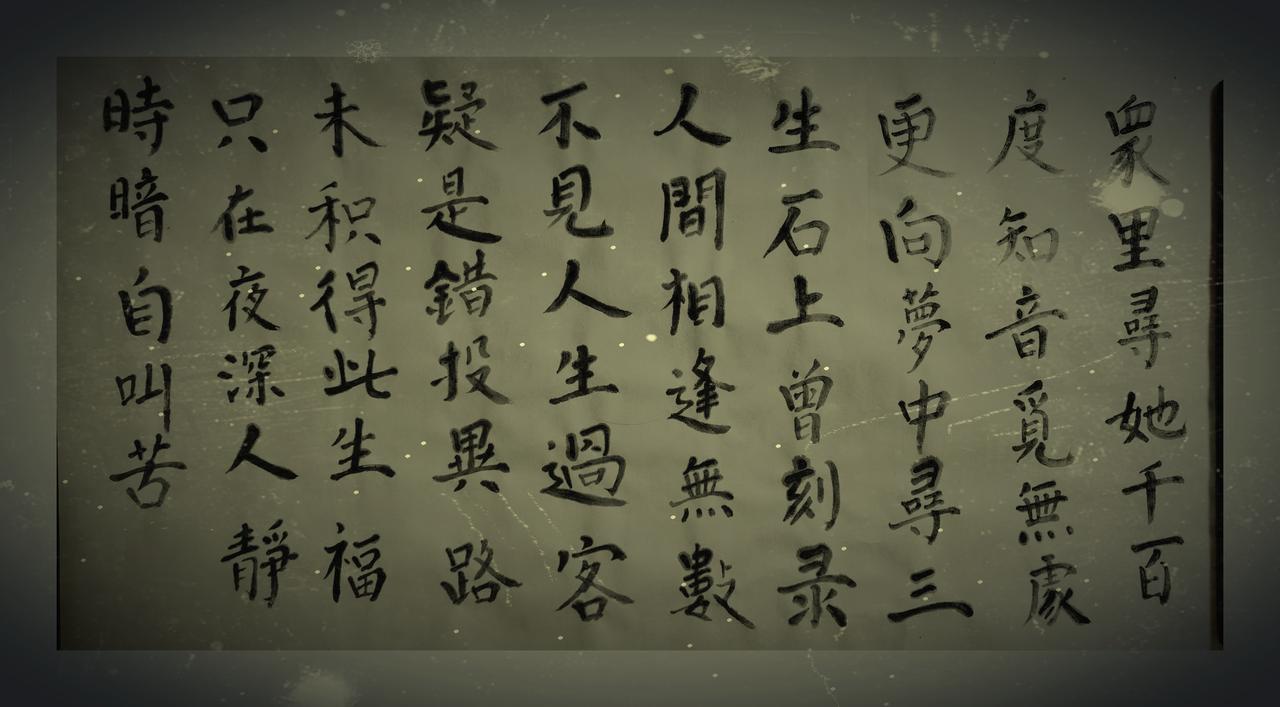 眾里尋她千百
度知音覓無處
更向夢中尋三
生石上曾刻录
人間相逢無數
不見人生過客
疑是錯投異路
未积得此生福
只在夜深人靜
時暗自叫苦